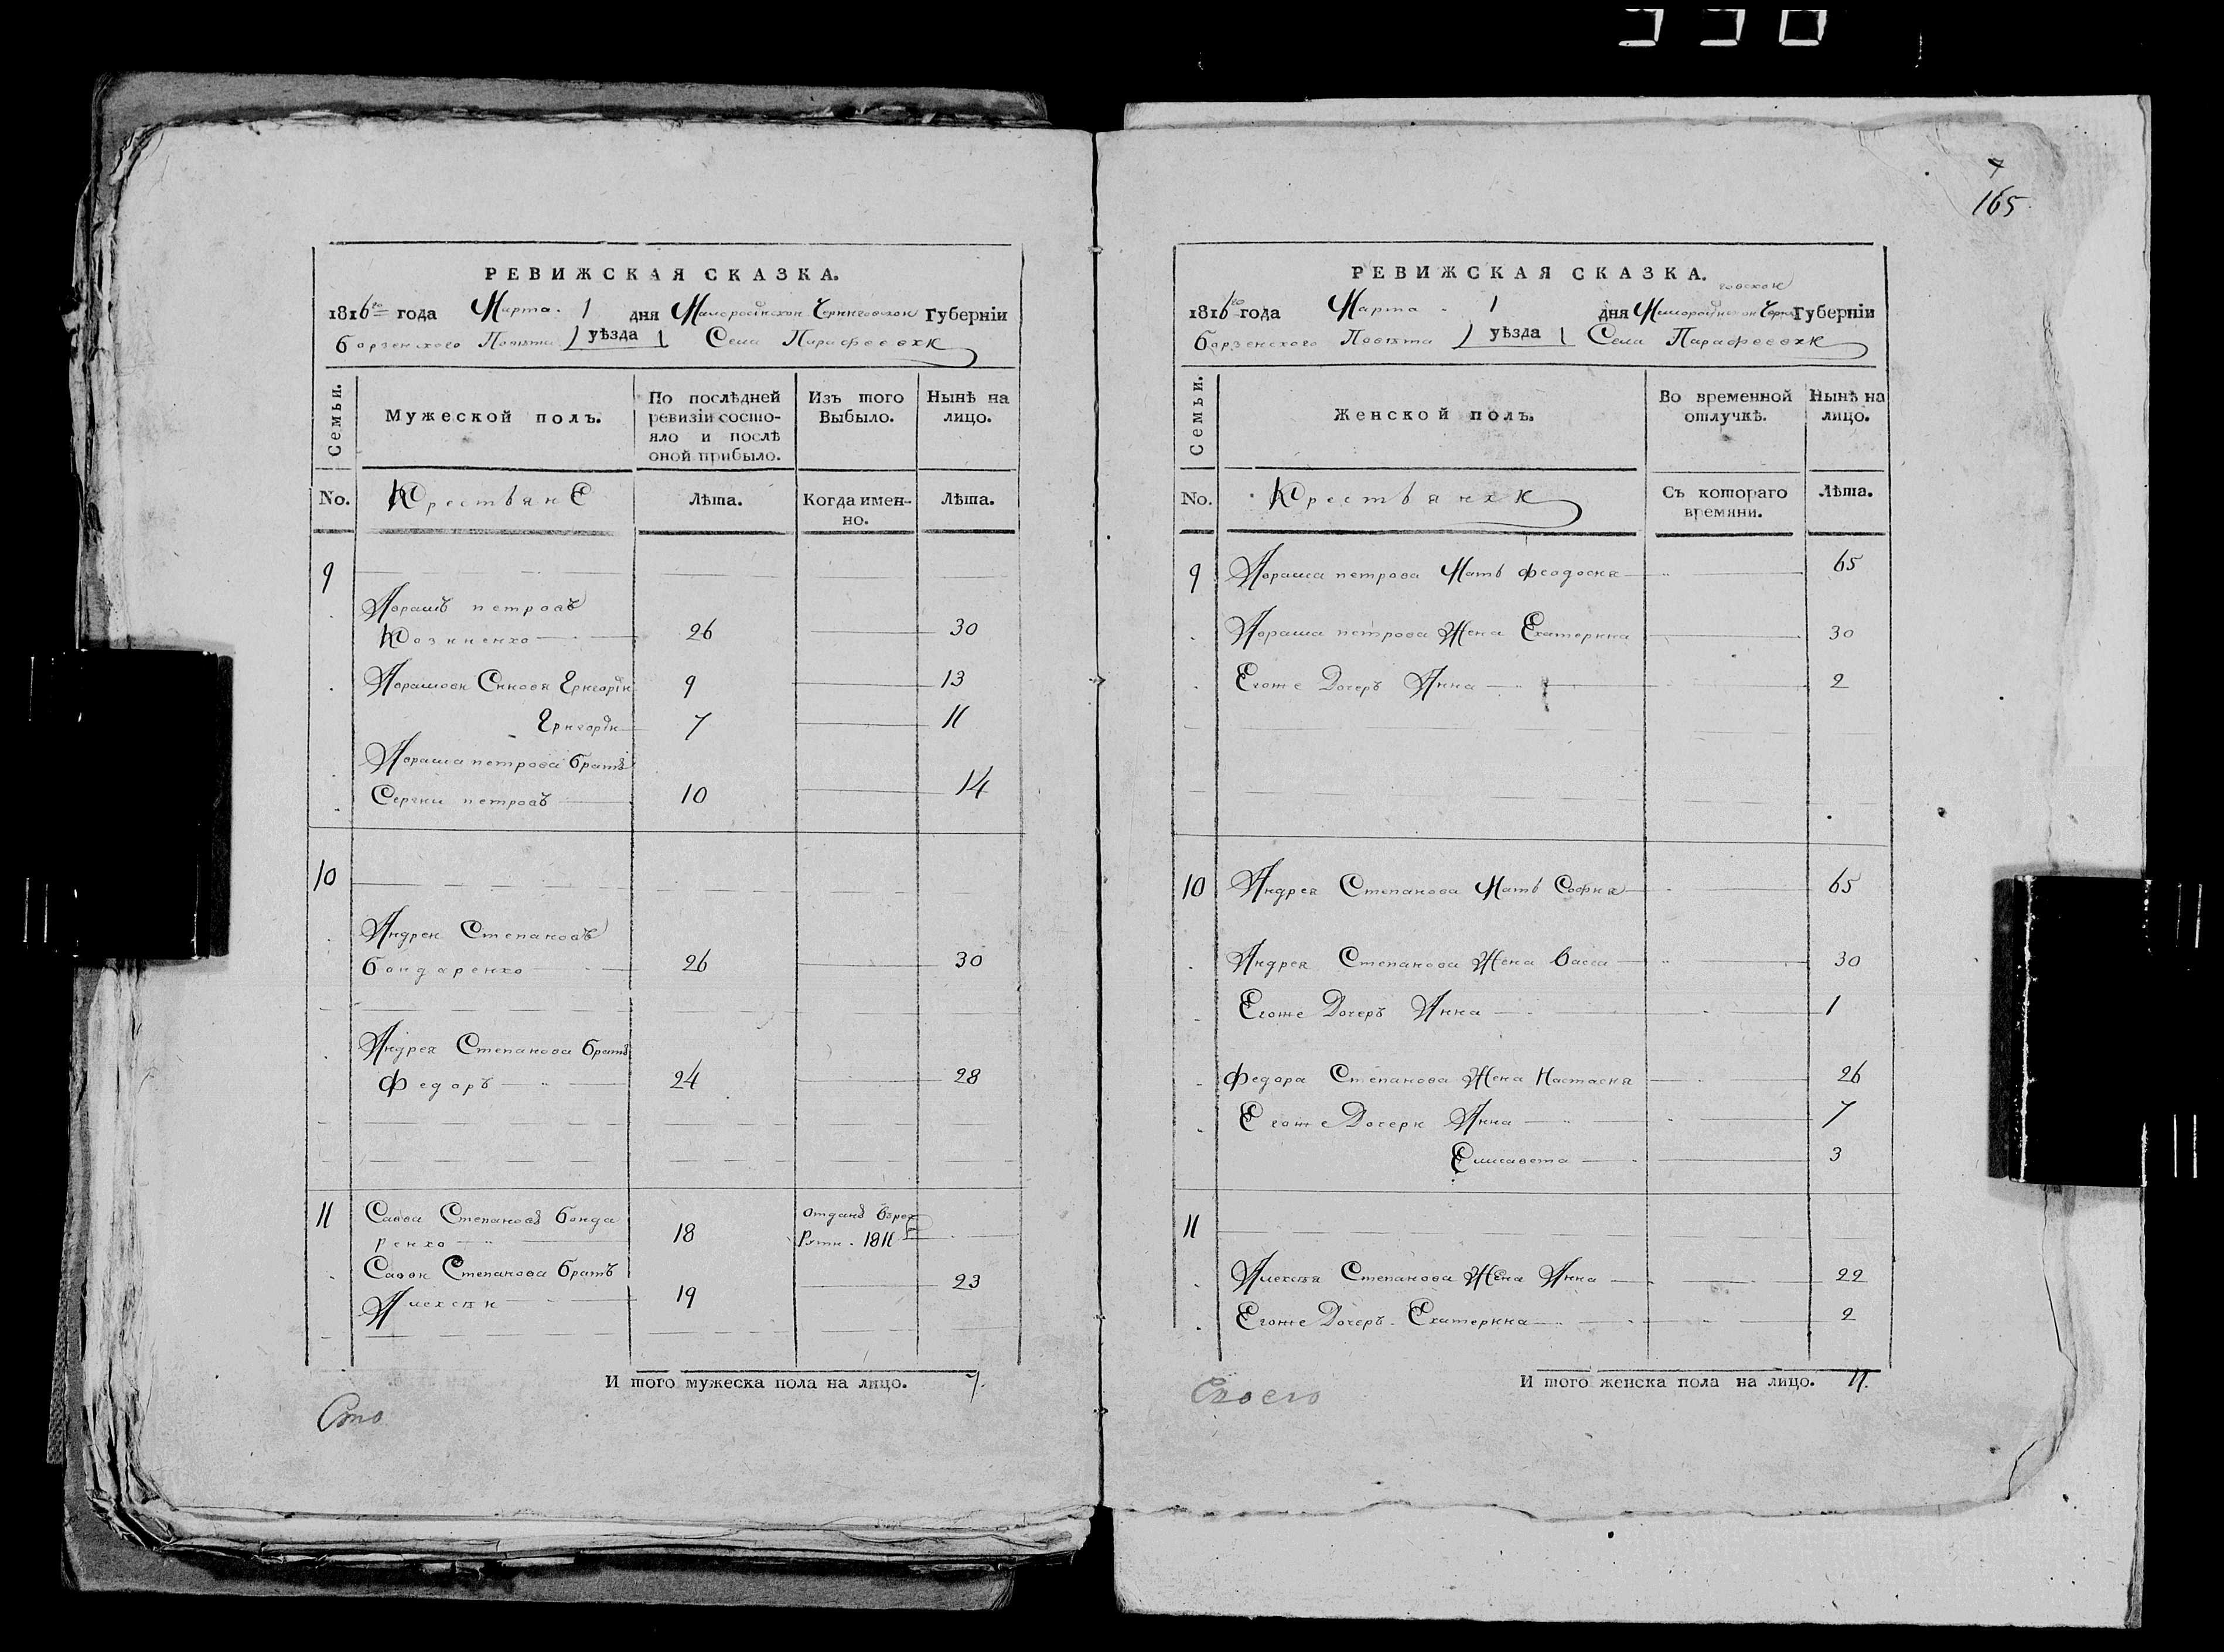 165
РЕВИЖСКАЯ СКАЗКА.
1816го года Марта 1 дня Малоросійской Черниговской Губерніи
Борзенского Повѣта уѣзда Села Парафеевки
Семьи.
Мужеской полъ.
По послѣдней ревизіи состояло и послѣ оной прибыло.
Изъ того Выбыло.
Нынѣ на лицо.
No.
Крестьяне
Лѣта.
Когда именно.
Лѣта.
9
Аврамъ петровъ
Козиненко 26 30
Аврамови Синовя Григорій 9 13
Григорій 7 11
Аврама петрова братъ
Сергій петровъ 10 14
10
Андрей Степановъ
бондаренко 26 30
Андрея Степанова братъ
Федоръ 24 28
11 Савва Степановъ бонда
ренко 18 отданъ Врек
руты 1811
Саввы Степанова братъ
Алексѣй 19 23
И того мужеска пола на лицо. 7.
Сто
РЕВИЖСКАЯ СКАЗКА.
1816го года Марта 1 дня Малоросійской Черниговской Губерніи
Борзенского Повѣта уѣзда Села Парафеевки
Семьи.
Женской полъ.
Во временной отлучкѣ.
Нынѣ на лицо.
No.
Крестьянки
Съ котораго времяни.
Лѣта.
9 Аврама петрова Мать феодосия 65
Аврама петрова Жена Екатерина 30
Егоже Дочеръ Анна 2
10 Андрея Степанова Мать София 65
Андрея Степанова Жена Васса 30
Егоже Дочеръ Анна 1
Федора Степанова Жена Настасия 26
Егоже Дочери Анна 7
Елисавета 3
11
Алексѣя Степанова Жена Анна 22
Егоже Дочеръ Екатерина 2
И того женска пола на лицо. 11.